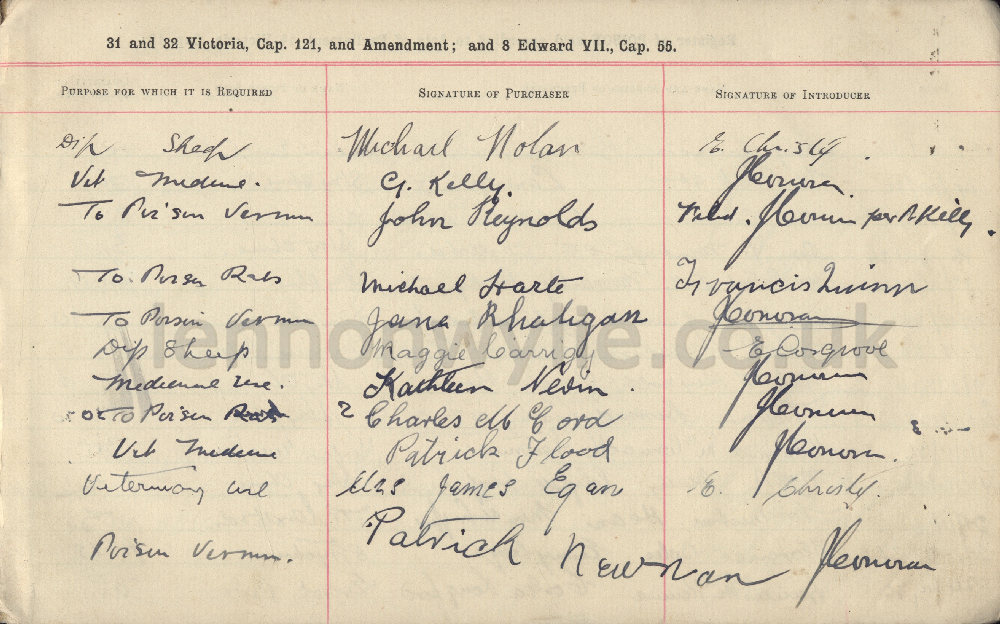 31 and 32 Victoria, Cap. 121, and Amendment; and 8 Edward VII., Cap. 55.
PURPOSE FOR WHICH IT IS REQUIRED SIGNATURE OF PURCHASER SIGNATURE OF INTRODUCER
Dip Sheep Michael Nolan E. Christy
Vet Medicine. G. Kelly. J Conoran
To Poison Vermin John Reynolds J Conoran per A Kelly.
To Poison Rats Michael Harte Francis Quinn
To Poison Vermin Jana Rhatigan J Conoran
Dip Sheep Maggie Carrigy E Cosgrove
Medicinal Use. Kathleen Nevin. J Conoran
To Poison Rats Charles McCord J Conoran
Vet Medicine Patrick Flood J Conoran.
Veterinary use Mrs James Egan E. Christy.
Poison Vermin. Patrick Newman J Conoran
lennonwylie.co.uk